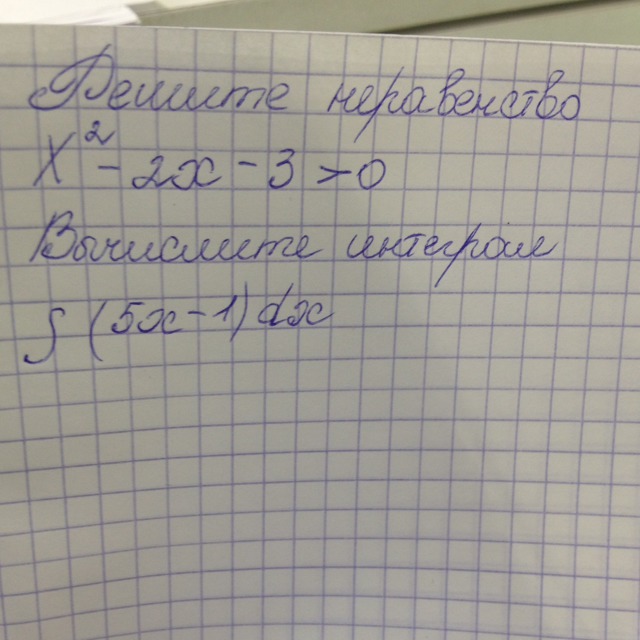 Решите неравенство
x² - 2x - 3 > 0
Вычислите интеграл
∫ (5x - 1) dx